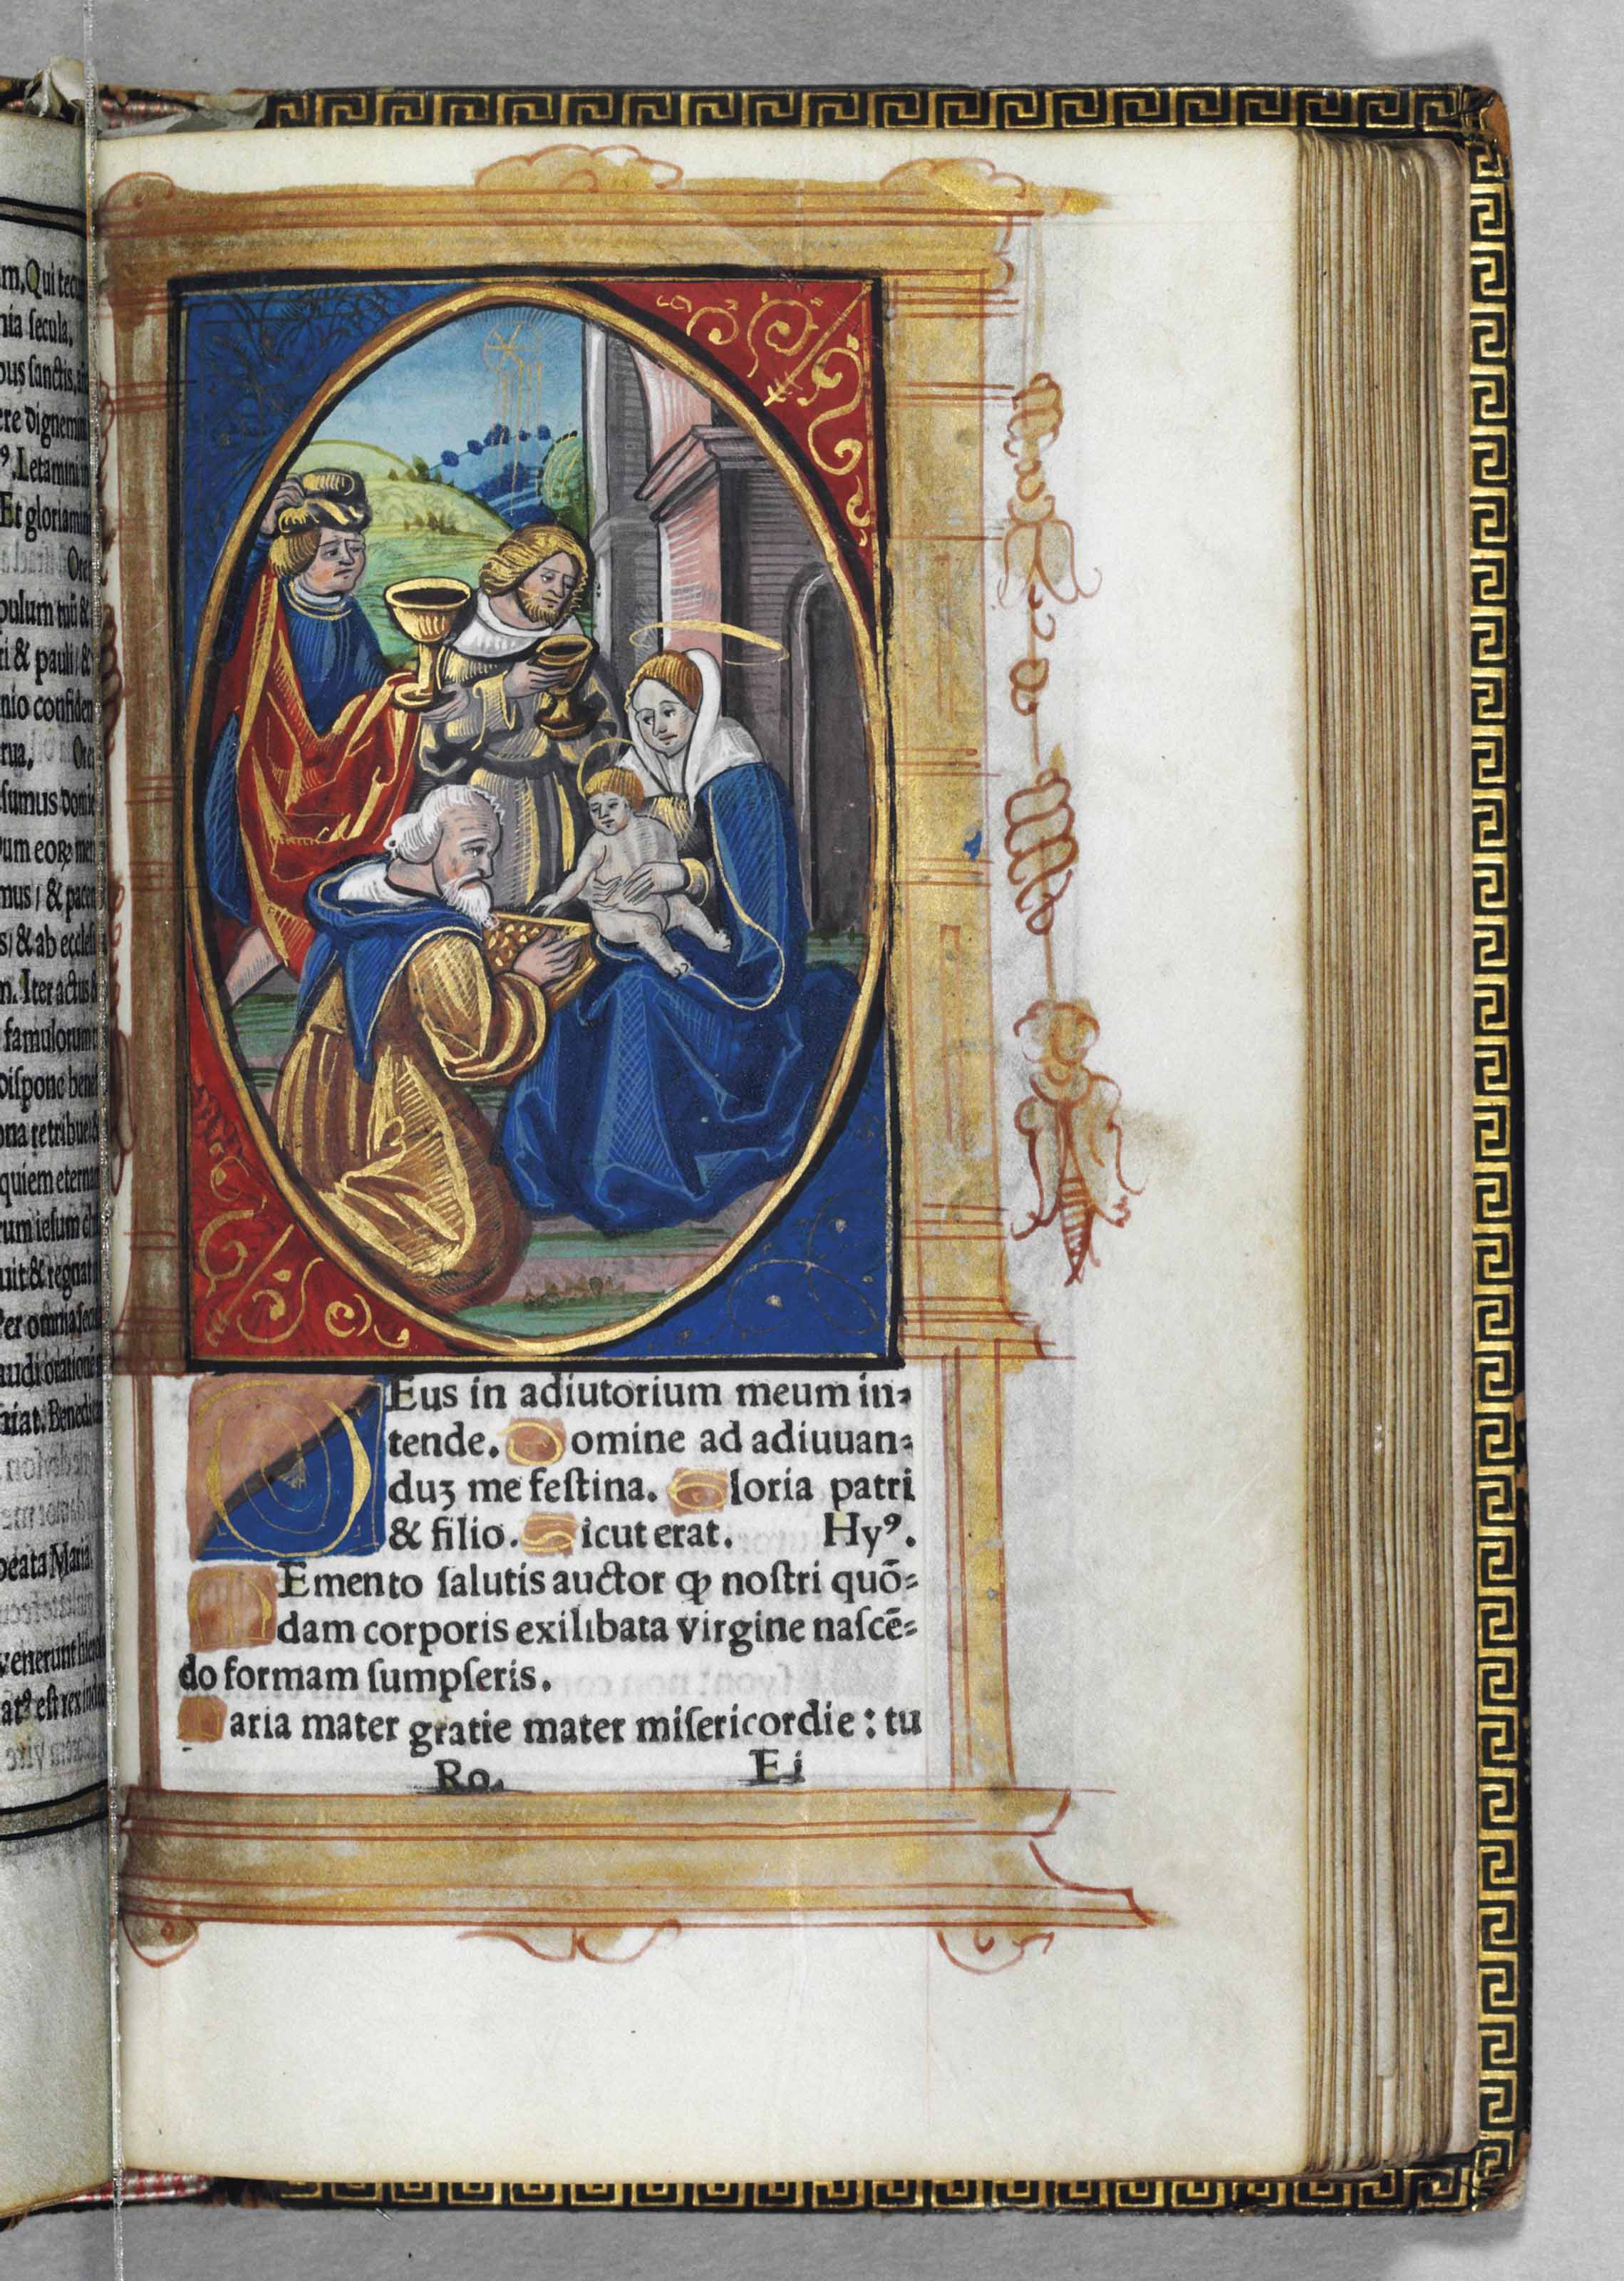 m, Qui tecu
nia ſecula.
bus ſanctis,
ere dignemini
⁹. Letamini in
Et gloriamini
Ore
pulum tuū &
ri & pauli/ &
nio confiden
rua. Ore
ſumus domi
mus/ & pacem
s/ & ab eccleſi
n. Iter actus
famulorum
diſpone bene
ona retribue
quiem eternam
rum ieſum ch
uit & regnat
Per omnia ſec
audi orationē
Benedi
beata Maria
venerunt
at⁹ eſt rex
DEus in adiutorium meum in⸗
tende. Domine ad adiuuan⸗
duꝫ me feſtina. Gloria patri
& filio. Sicut erat. Hy⁹.
MEmento ſalutis auctor ꝙ noſtri quō⸗
dam corporis exilibata virgine naſcē⸗
do formam ſumpſeris.
Maria mater gratie mater miſericordie : tu
Ro. E j